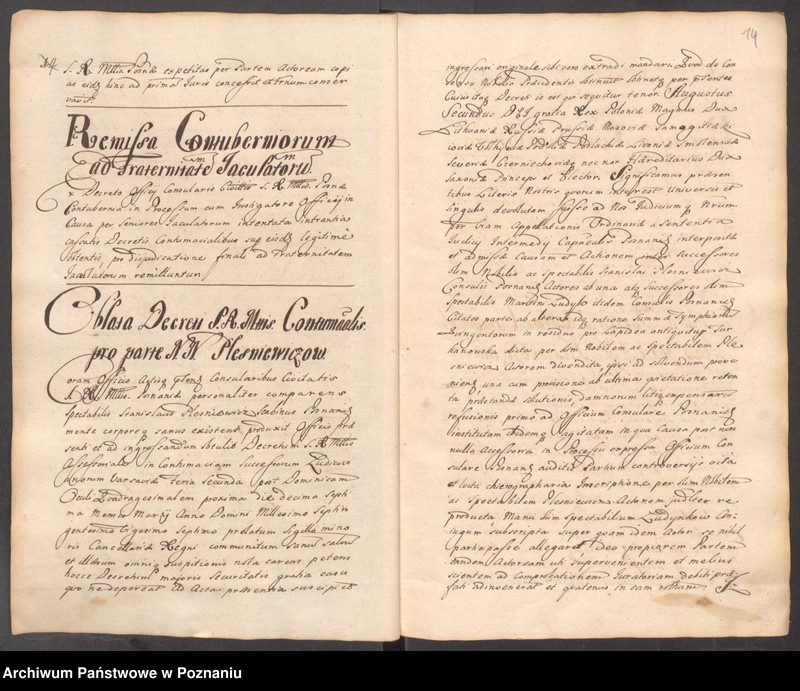 S. R. Mttis Posnae expetitas per Partem Actoream copi
as eidem hinc ad prima Juris concessit et Terminum conser
vavit.
Remissa Contuberniorum
ad Fraternitatem Jaculatorum
Ex Decreto Officij Consularis Civitatis S. R. Mttis Posnae
Contubernia in Processum cum Instigatore Officij in
Causa per Seniores Jaculatorum intentata intrantia
cassatis Decretis Contumacialibus super eisdem legitime
obtentis, pro disjudicatione finali ad Fraternitatem
Jaculatorum remittuntur
Oblata Decreti S. R. Mttis Contumacialis
pro parte N. N. Plesniewiczow
Coram Officio Actisque Consularibus Civitatis
S. R. Mttis Posnaniae personaliter comparens
Spectabilis Stanislaus Plesniewicz Scabinus Posnaniensis
mente corporeque sanus existens produxit Officio prae
senti et ad ingrossandum obtulit Decretum S. R. Mttis
Assessoriale in Contumaciam Successorum
Varsaviae Feria Secunda post Dominicam
Oculi Quadragesimalem proxima die decima Septi
ma Mensis Martij Anno Domini Millesimo Septin
gentesimo Vigesimo Septimo prolatum Sigillo mino
ris Cancellariae Regni communitum Sanum Salvum
et illaesum omnique Suspitionis nota carens petens
hocce Decretum majoris Securitatis gratia casu
quo ne depereat ad Acta praesentia suscipi et
14
ingrossari originale sibi vero extradi mandari. Quod de Con
sensu Nobilis Praesidentis obtinuit obtinetque per praesentes
Cujus quidem Decreti is est qui sequitur tenor. Augustus
Secundus DEI gratia Rex Poloniae Magnus Dux
Lithvaniae Russiae Prussiae Masoviae Samogitiae Ki
ioviae Volhyniae Podoliae Podlachiae Livoniae Smolensciae
Severiae Czerniechoviaeque nec non Haereditarius Dux
Saxoniae Princeps et Elector. Significamus praesen
tibus Literis Nostris quorum interest Universis et
Singulis devolutam fuisse ad Nos Judicium que Nostrum
per viam Appellationis Ordinariae a Sententia
Judicij Intermedij Capnealis Posnaniensis interpositae
et admissae Causam et Actionem inter Successores
olim Nobilis ac Spectabilis Stanislai Plesniewicz
Consulis Posnaniensis Actores ab una atque Successores olim
Spectabilis Martini itidem Consulis Posnaniensis
Citatos parte ab altera idque ratione Summae
in residuo pro Lapidea antiquitus Sur
kanowska dicta per olim Nobilem ac Spectabilem Ple
sniewicz Actorem divendita, ipsi ad solvendum prove
niens una cum provisione ab ultima quietatione reten
ta praestandae solutionis, damnorum litis expensarum
refusionis primo ad Officium Consulare Posnaniense
institutam ibidemque agitatam in qua Causa post non
nulla Accessoria in Processu expressa Officium Con
sulare Posnaniense auditis Partium controversijs visa
et lecta chirographaria Inscriptione per olim Nobilem
ac Spectabilem Plesniewicz Actorem judicialiter re
producta Manu olim Spectabilium Con
jugum subscripta super quam idem Actor se nihil
participasse allegaret ideo propterea Partem
tandem Actoream uti Supervenientem et melius
scientem ad comprobationem Juratoriam debiti prae
fati adinvenerat et quatenus in eam rotham